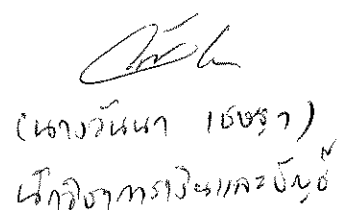 (นางวันนา เชษฐา)
นักวิชาการเงินและบัญชี